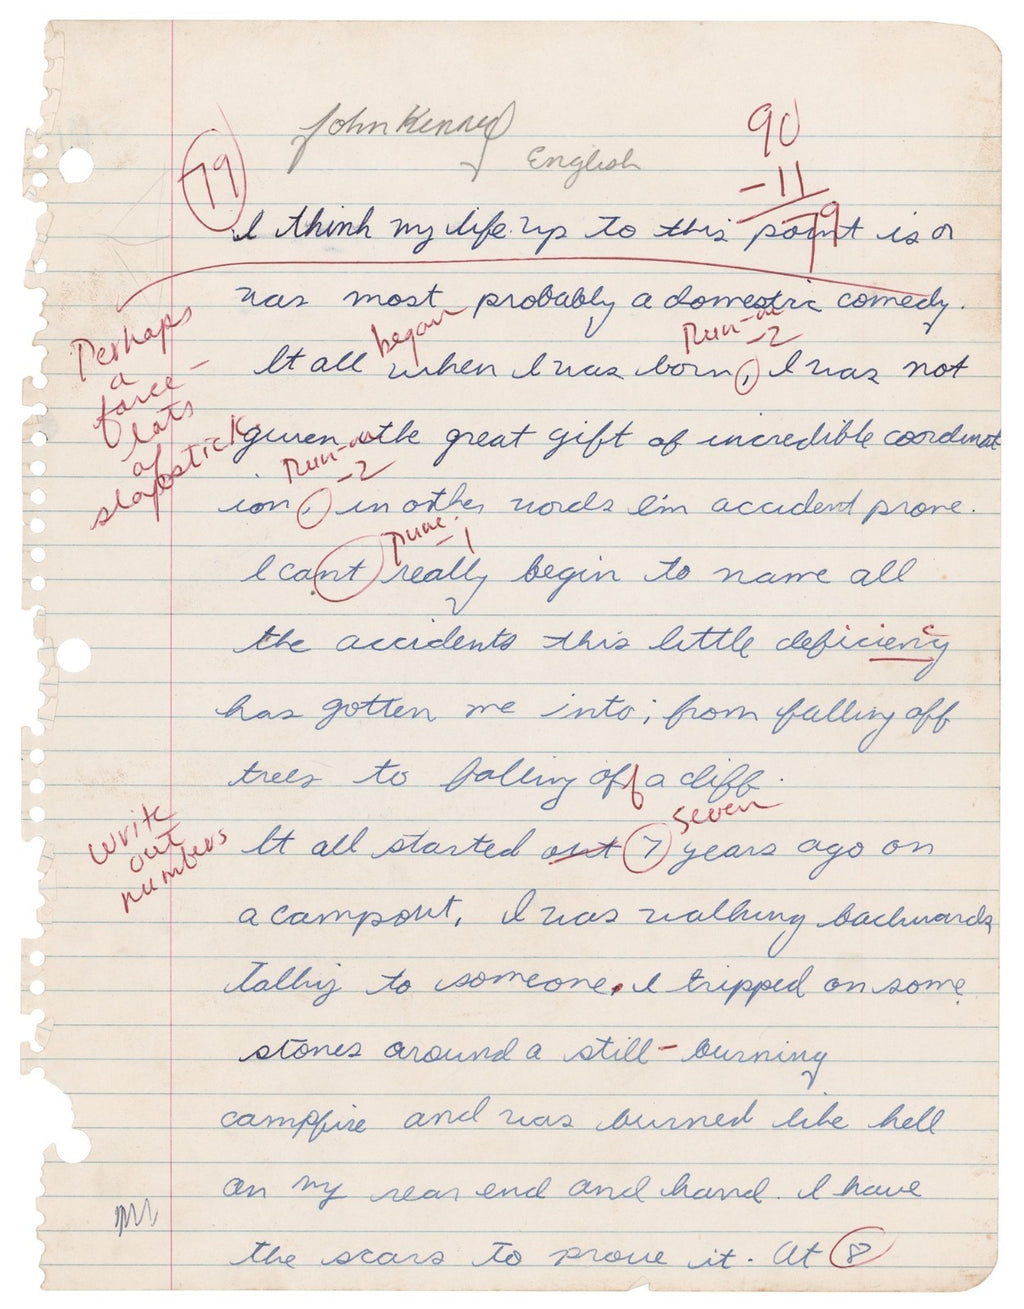 John Kenned
English
90
-11
79
79
I think my life up to this point is or
was most probably a domestic comedy.
Perhaps
a
farce -
lots
of
slapstick
began
Run-on
-2
It all when I was born, I was not
given the great gift of incredible coordinat
Run-on
-2
ion, in other words I'm accident prone.
Punc.
-1
I cant really begin to name all
c
the accidents this little deficieny
has gotten me into; from falling off
trees to falling off a cliff.
Write
out
numbers
seven
It all started out 7 years ago on
a campout, I was walking backwards
talking to someone. I tripped on some
stones around a still-burning
campfire and was burned like hell
on my rear end and hand. I have
the scars to prove it. At 8